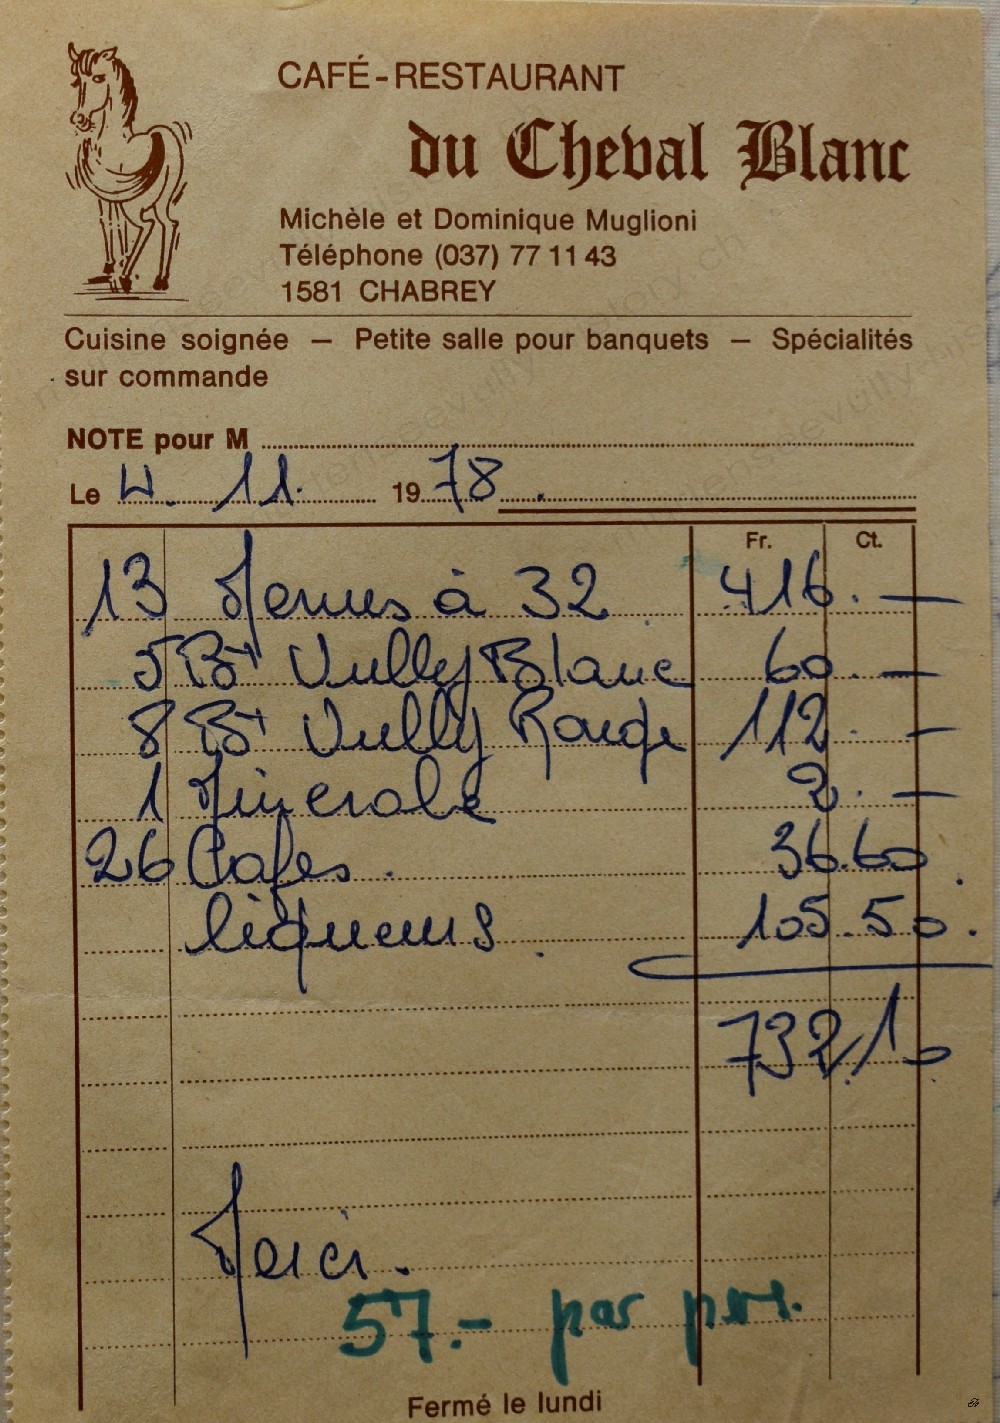 CAFÉ-RESTAURANT
du Cheval Blanc
Michèle et Dominique Muglioni
Téléphone (037) 77 11 43
1581 CHABREY
Cuisine soignée — Petite salle pour banquets — Spécialités
sur commande
NOTE pour M
Le 4. 11. 1978.
Fr. Ct.
13 Menus à 32 416.—
5 Bt Vully Blanc 60.—
8 Bt Vully Rouge 112.—
1 Minerale 2.—
26 Cafes. 36.60.
liqueurs. 105.50.
732.10
Merci.
57.- par pers.
Fermé le lundi